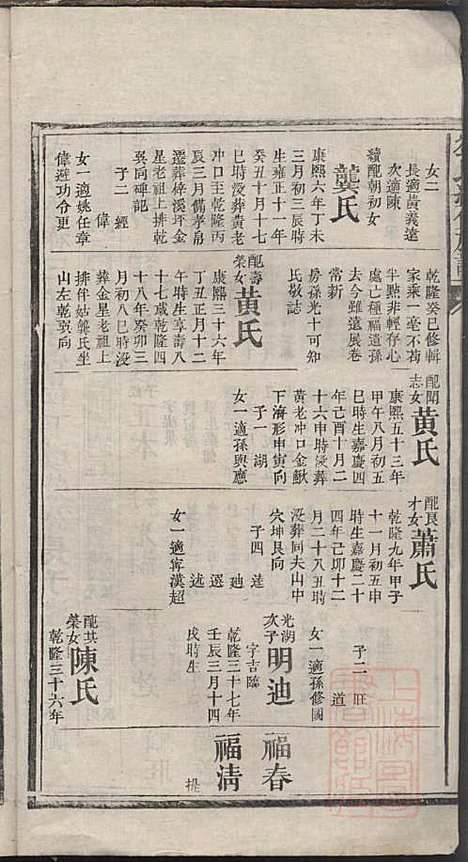 女二
長適黃義遠
次適陳
續配朝初女
龔氏
康熙六年丁未
三月初三辰時
生雍正十一年
癸丑十月十七
巳時歿葬黃老
冲口至乾隆丙
辰三月備孝帛
遷葬梓溪坪金
星老祖上排乾
巽同碑記
子二 經
偉
女一適姚任章
偉遜功令更
乾隆癸巳修輯
家乘一毫不苟
半點非輕存心
處亡種福遺孫
去今雖遠展卷
常新
房孫光十可知
氏敬誌
配壽榮女
黃氏
康熙三十六年
丁丑正月十二
午時生享壽八
十七歲乾隆四
十八年癸卯三
月初八巳時歿
葬金星老祖上
排伴姑龔氏坐
山左乾巽向
配開志女
黃氏
康熙五十三年
甲午八月初五
巳時生嘉慶四
年己酉十月二
十六申時歿葬
黃老冲口金鰍
下海形申寅向
子一 湖
女一適孫與應
配良才女
蕭氏
乾隆九年甲子
十一月初五申
時生嘉慶二十
四年己卯十二
月二十八丑時
歿葬同夫山中
穴坤艮向
子四 逵
迪
選
述
女一適甯漢超
子二 旺
道
女一適孫修國
光湖次子
明迪
字吉臨
乾隆三十七年
壬辰三月十四
戌時生
配其榮女
陳氏
乾隆三十六年
福春
福清
挑